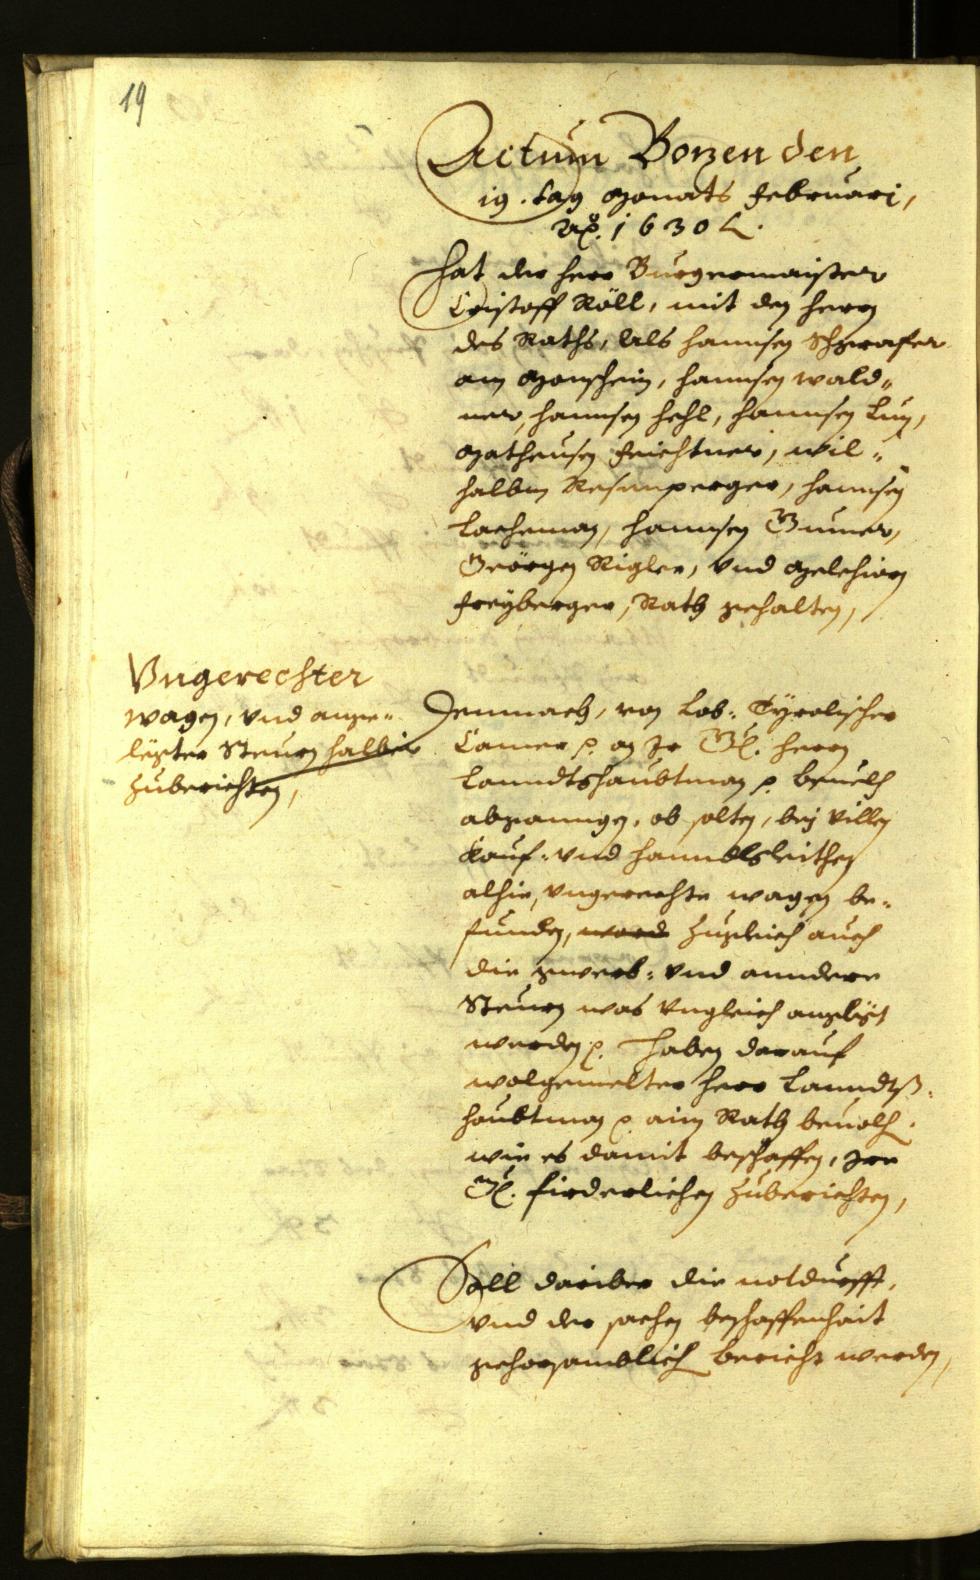 19
Actum Bozen den
19. tag Monats Februarj,
Ao. 1630 L.
Hat der herr Burgermaister
Cristoff Röll, mit den herrn
des Raths, als Hannsen Schgrafer
am Monschein, Hannsen Wald„
ner, Hannsen Hehl, Hannsen Lun,
Matheusen Feichtner, Wil„
halbm Resenperger, Hannsen
Lacheman, Hannsen Gumer,
Geörgen Rigler, vnd Melchiorn
Freyberger, Rath gehalten,
Vngerechter
wagen, vnd ange„
legter Steurn halber
zuberichten,
Demnach, von Lob: Tyrolischer
Camer p. an Ir Gl. herrn
Lanndtshaubtman p. beuelch
abgangen, ob solten, bey villen
Kauf: vnd Hanndlsleithen
alhie, vngerechte wagen be„
funden, word zugleich auch
die gwerb: vnd anndere
Steurn was vngleich anglegt
werden p. Haben darauf
wolgemelter herr Lanndts„
haubtman p. aim Rath beuolh.
wie es damit beschaffen, Ire
Gl. firderlichen zuberichten,
Soll dariber die notdurfft,
vnd der sachen beschaffenhait
gehorsamblich bericht werden,